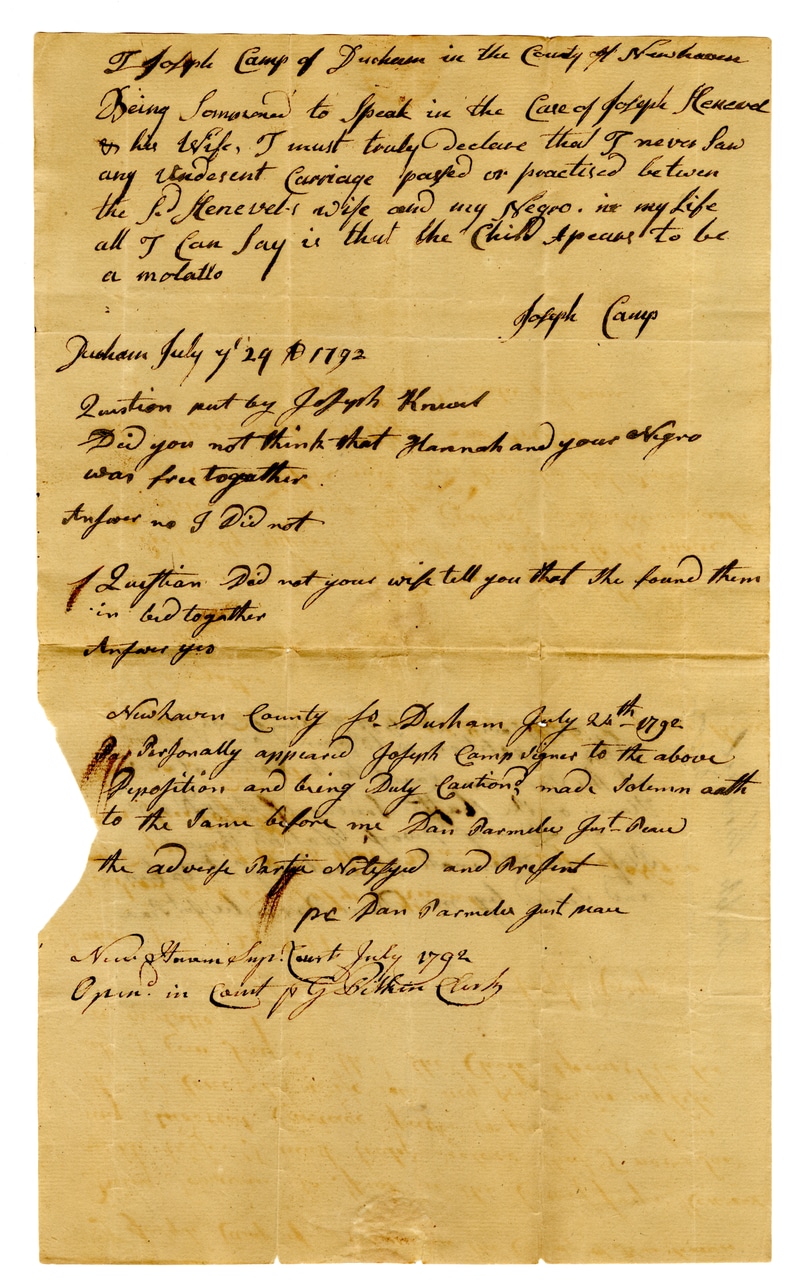 I Joseph Camp of Durham in the County of Newhaven
Being Sommoned to Speak in the Case of Joseph Henevel
& his Wife, I must truly declare that I never Saw
any Undesent Carriage passed or practised betwen
the Sd. Henevel's wife and my Negro. in my Life
all I Can Say is that the Child Apears to be
a molatto
Joseph Camp
Durham July ye 29 AD 1792
Question put by Joseph
Did you not think that Hannah and your Negro
was free together
Answer no I Did not
Questian Did not your wife tell you that She found them
in bed together
Answer yes
Newhaven County Ss. Durham July 24th 1792
Personally appeared Joseph Camp signer to the above
Deposition and being Duly Cautiond made Solemn oath
to the Same before me Dan Parmele Just- Peace
the adverse Partie Notifyed and Present
pr Dan Parmele Just peace
New Haven Supr. Court July 1792
Opend. in Court pr G Pitkin Clerk